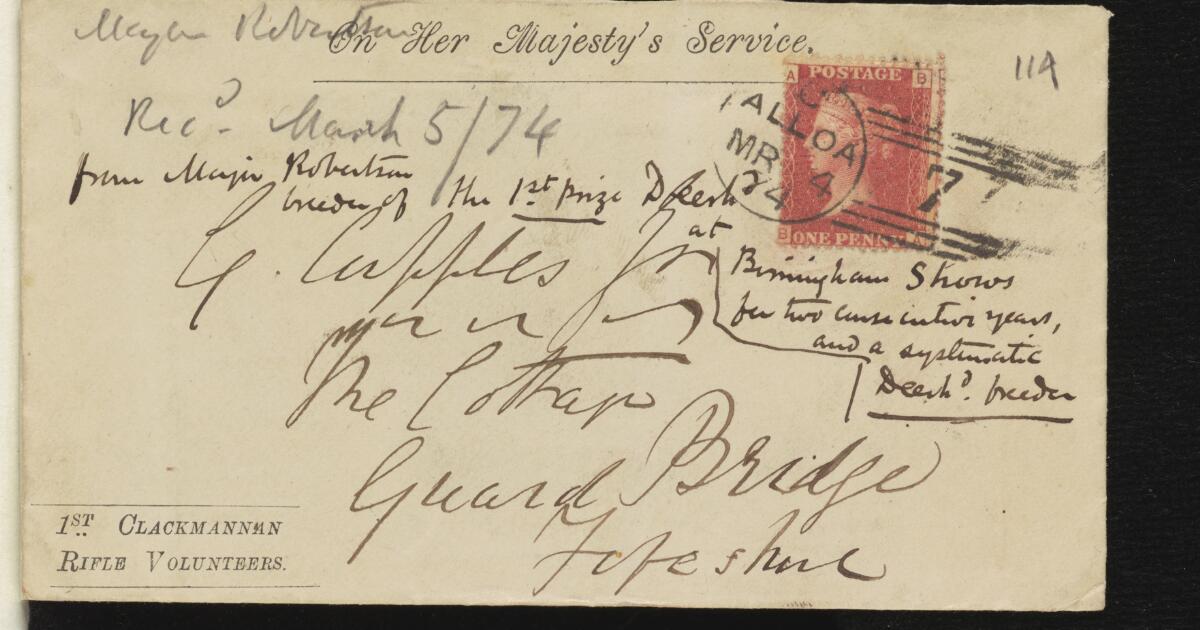 Major Robertson
On Her Majesty's Service.
114
Recd. March 5/74
from Major Robertson
breeder of the 1st prize Deerh
at
Birmingham Shows
for two consecutive years,
and a systematic
Deerhd. breeder
A POSTAGE B
B ONE PENNY A
ALLOA
MR 4
74
7
G. Cupples
The Cottage
Guard Bridge
Fifeshire
1ST CLACKMANNAN
RIFLE VOLUNTEERS.